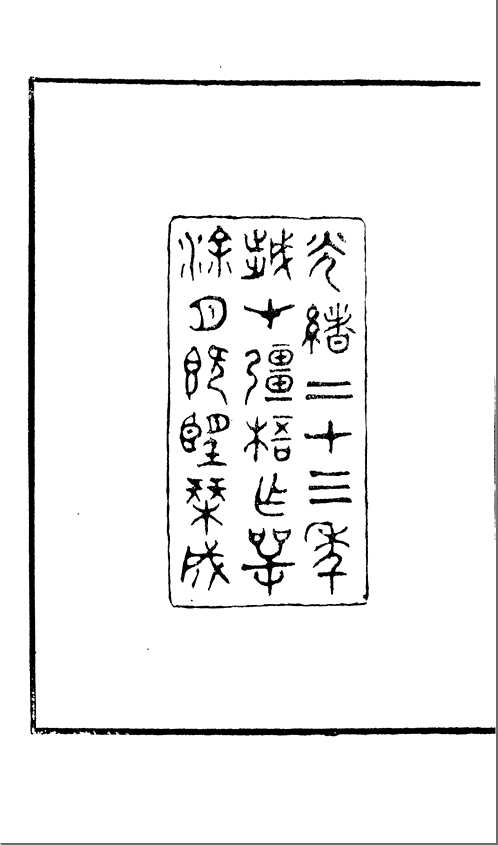 光緒二十三年
歲在彊梧作噩
涂月既朢栞成